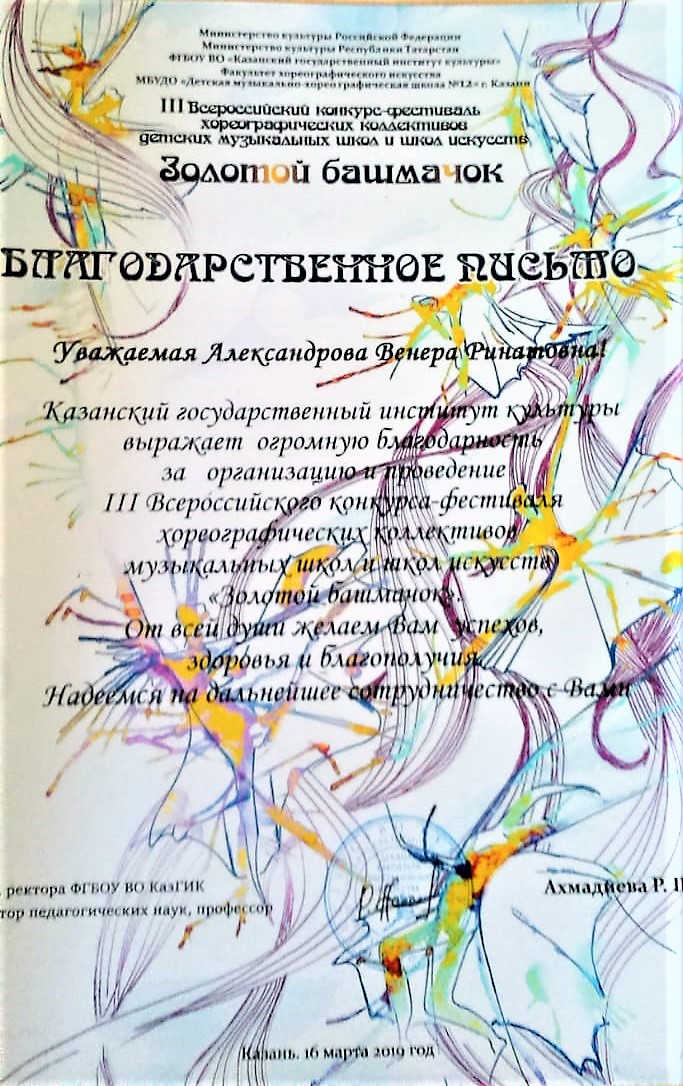 Министерство культуры Российской Федерации
Министерство культуры Республики Татарстан
ФГБОУ ВО «Казанский государственный институт культуры»
Факультет хореографического искусства
МБУДО «Детская музыкально-хореографическая школа №12» г. Казани
III Всероссийский конкурс-фестиваль
хореографических коллективов
детских музыкальных школ и школ искусств
Золотой башмачок
БЛАГОДАРСТВЕННОЕ ПИСЬМО
Уважаемая Александрова Венера Ринатовна!
Казанский государственный институт культуры
выражает огромную благодарность
за организацию и проведение
III Всероссийского конкурса-фестиваля
хореографических коллективов
музыкальных школ и школ искусств
«Золотой башмачок».
От всей души желаем Вам успехов,
здоровья и благополучия.
Надеемся на дальнейшее сотрудничество с Вами
ректора ФГБОУ ВО КазГИК
Ахмадиева Р.
тор педагогических наук, профессор
Казань, 16 марта 2019 год